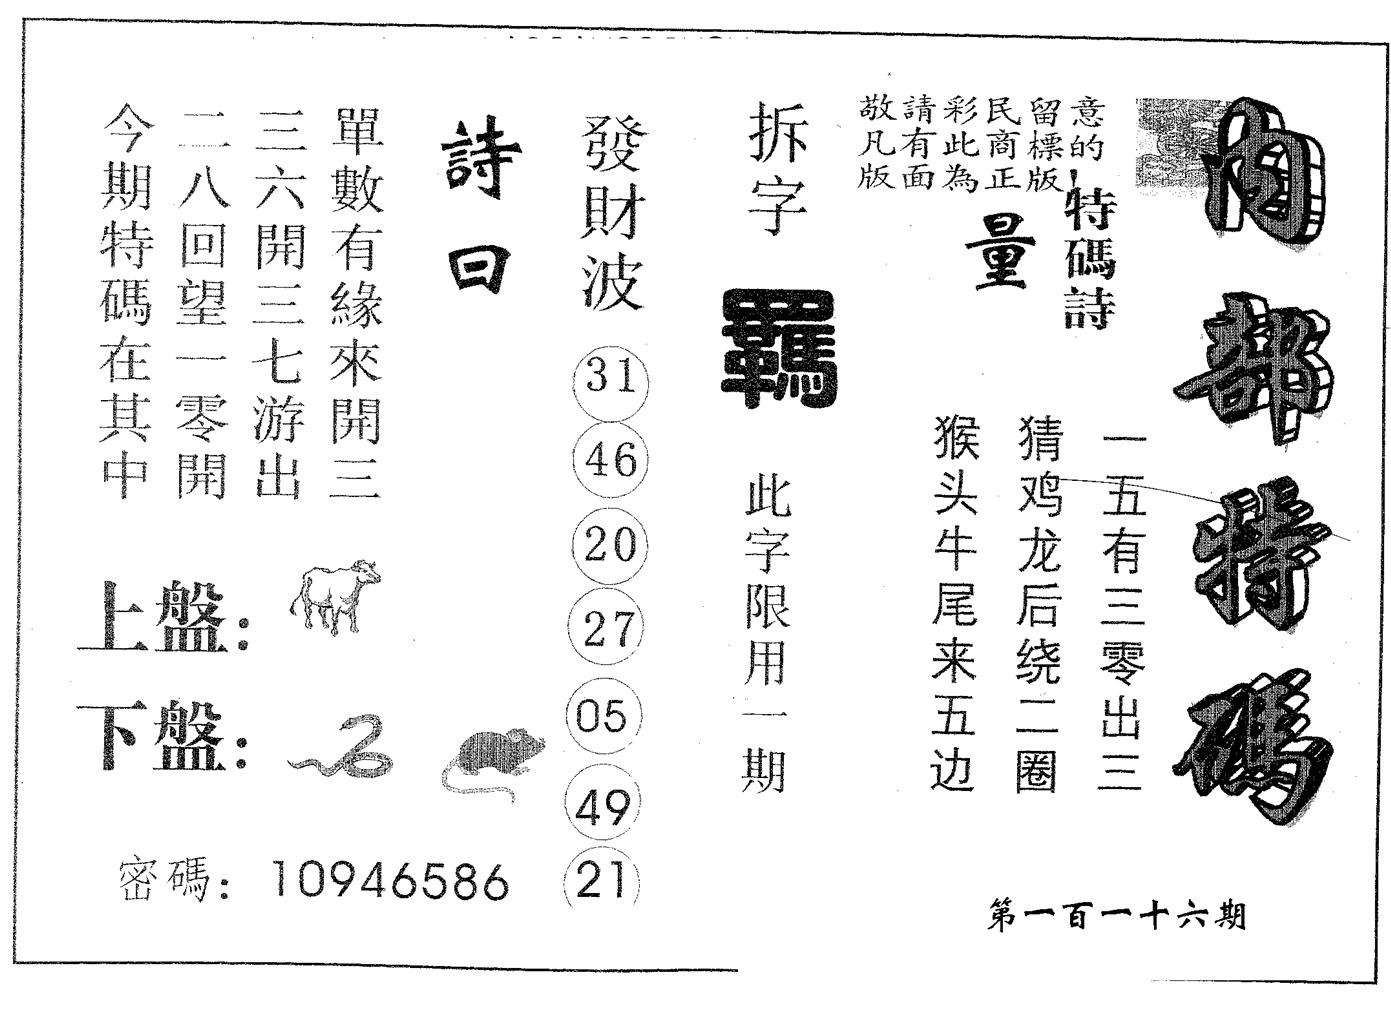 内部特碼
第一百一十六期
特碼詩
意的
留標版,
民商正
彩此為
請有面
敬凡版
量
一五有三零出三
猜鸡龙后绕二圈
猴头牛尾来五边
拆字
羈
此字限用一期
發財波
31
46
20
27
05
49
21
詩曰
單數有緣來開三
三六開三七游出
二八回望一零開
今期特碼在其中
上盤:
下盤:
密碼: 10946586